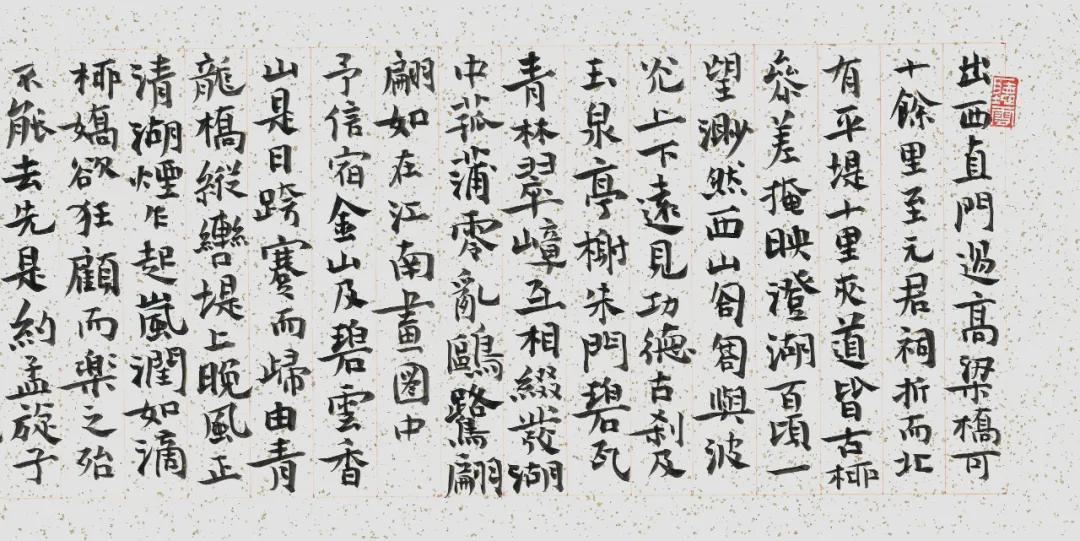 出西直門過高梁橋可
十餘里至元君祠折而北
有平堤十里夾道皆古柳
參差掩映澄湖百頃一
望渺然西山匌匒與波
光上下遠見功德古刹及
玉泉亭榭朱門碧瓦
青林翠嶂互相綴發湖
中菰蒲零亂鷗鷺翩
翩如在江南畫圖中
予信宿金山及碧雲香
山是日跨蹇而歸由青
龍橋縱轡堤上晚風正
清湖煙乍起嵐潤如滴
柳嬌欲狂顧而樂之殆
不能去先是約孟旋子